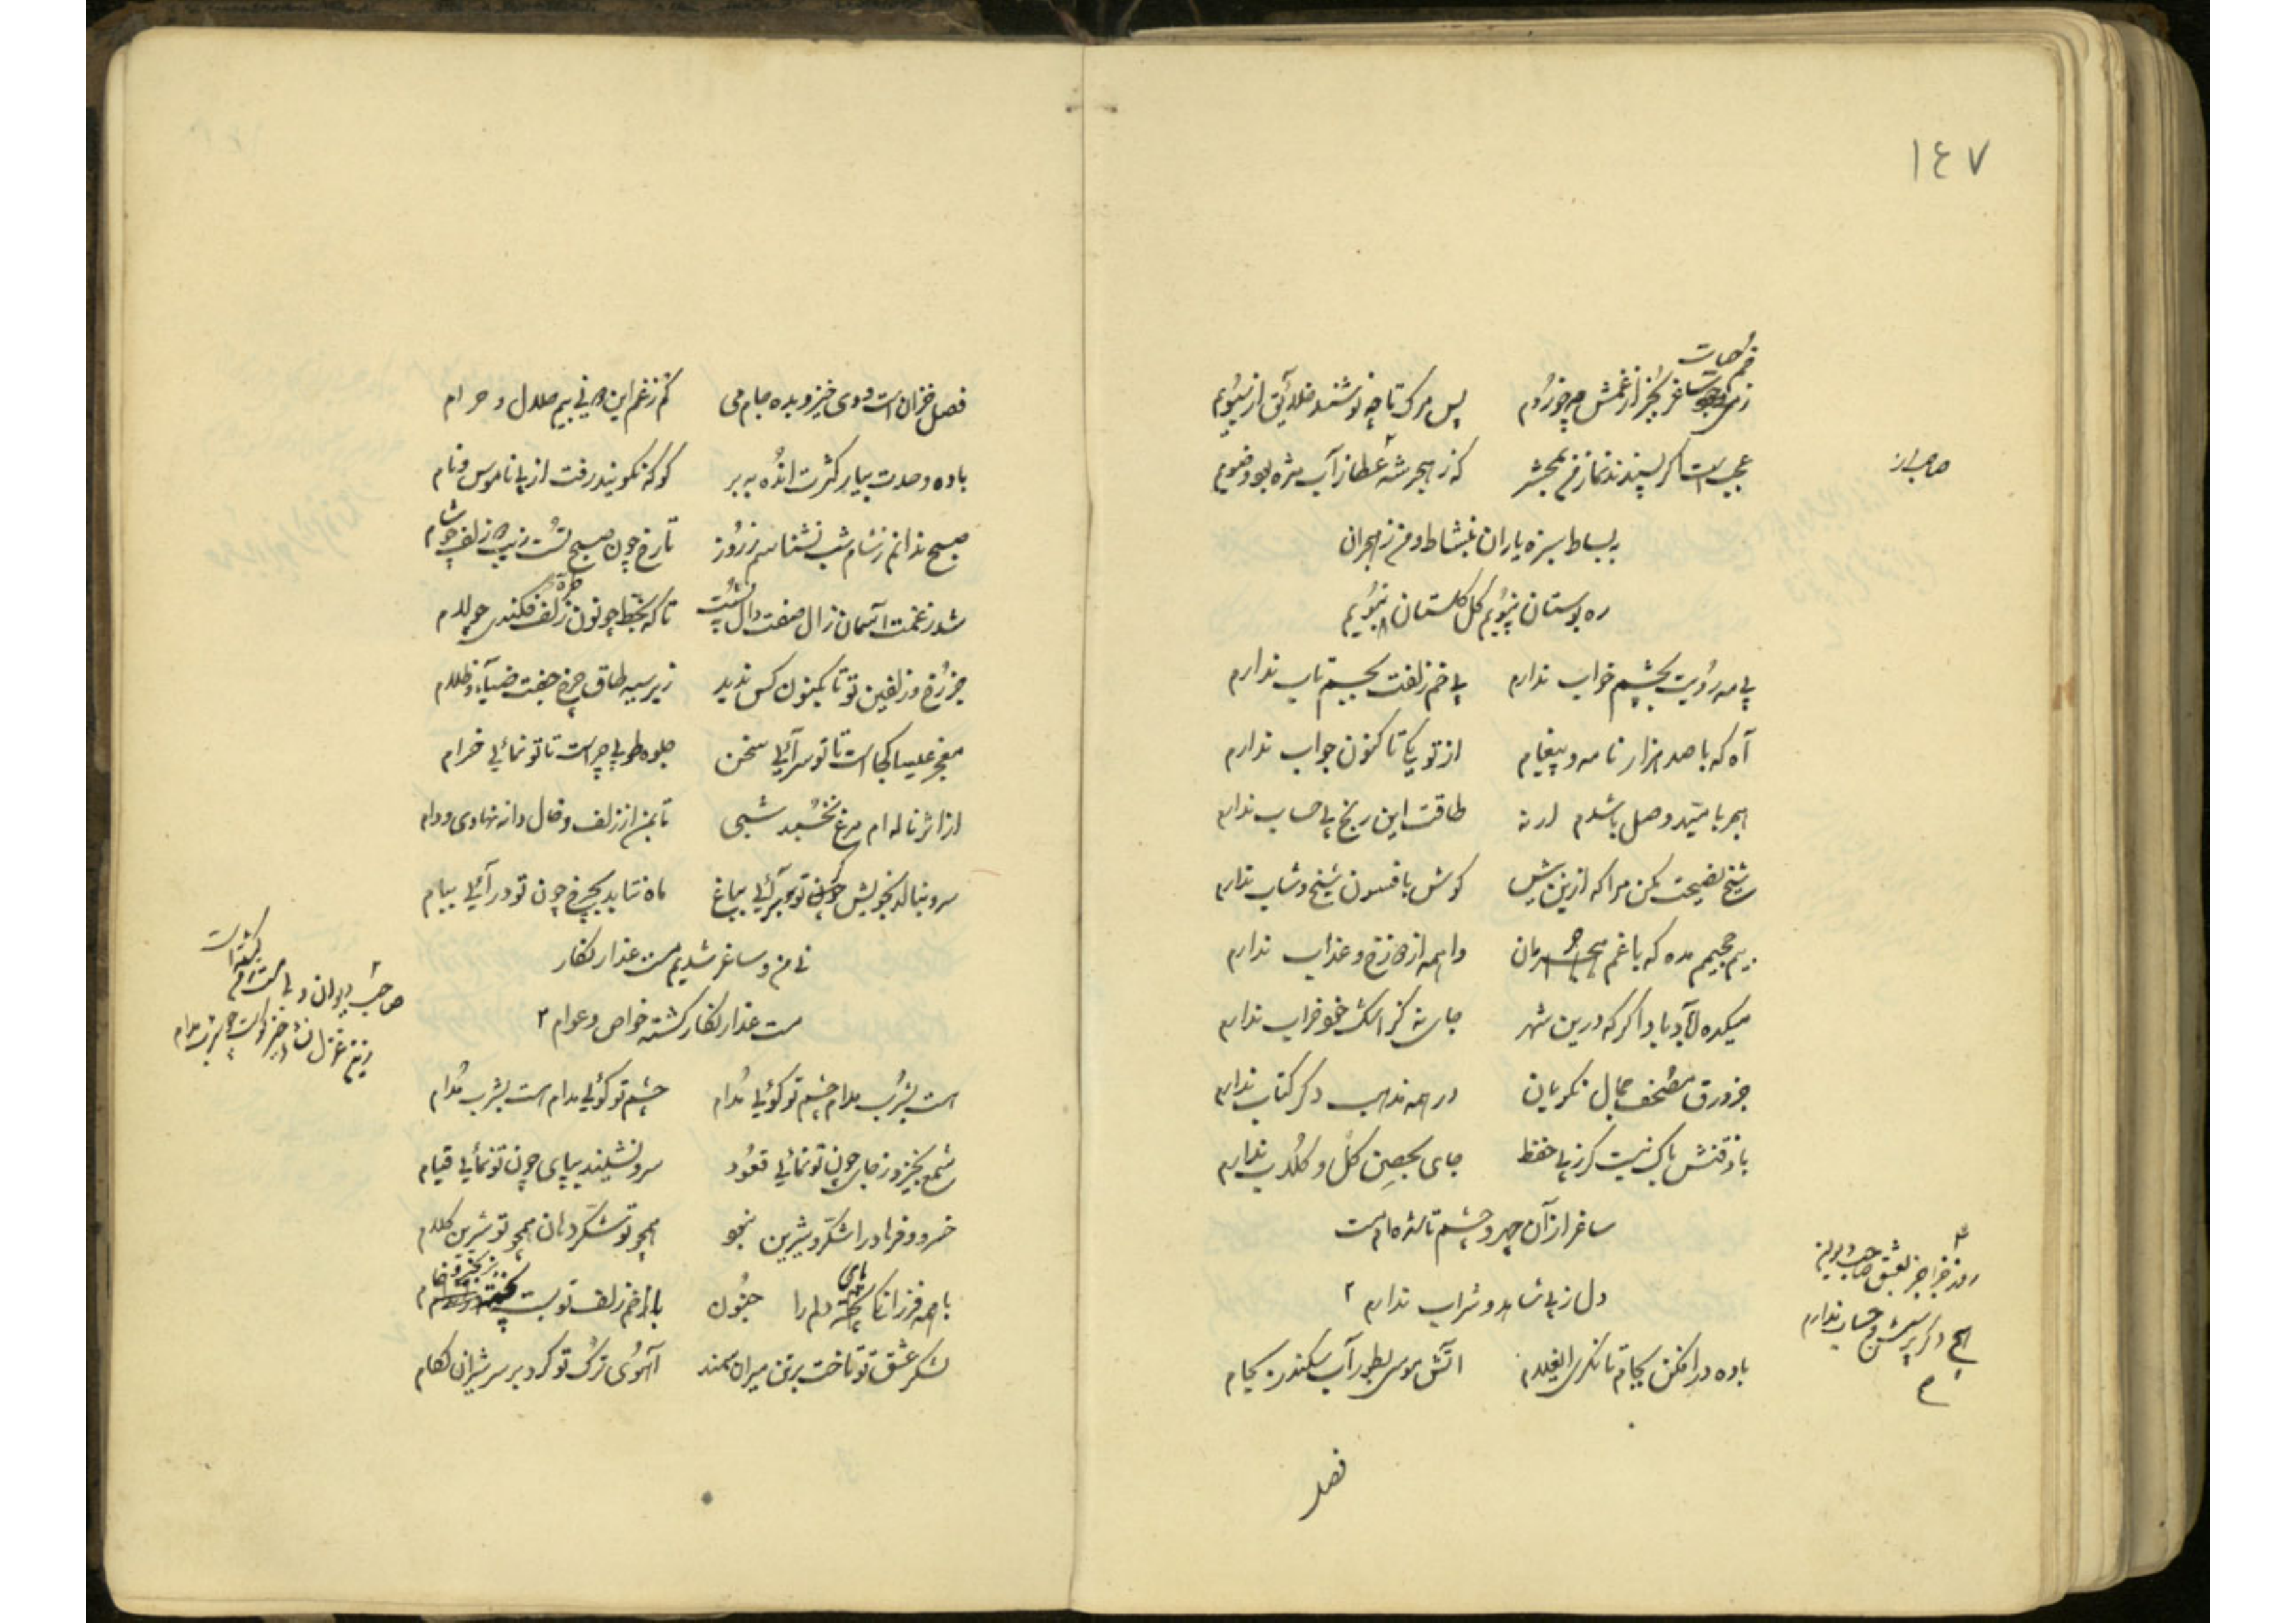 ١٤٧
خم حیات
زمی ساغر بجز از غمش چه خوردم پس مرگ تا چه نوشتند خلائق از سبویم
عجب است اگر پسندند نماز من بمحشر که ز هجر شه عطا از آب مژه بود وضویم
به بساط سبزه یاران بنشاط و من ز هجران
ره بوستان نپویم گل گلستان نبویم
بی مه رویت بچشم خواب ندارم بی خم زلفت بجسم تاب ندارم
آه که با صد هزار نامه و پیغام از تو یکی تا کنون جواب ندارم
هجر بامید وصل باشدم ار نه طاقت این رنج بی حساب ندارم
شیخ نصیحت مکن مرا که ازین پیش گوش بافسون شیخ و شاب ندارم
بیم جحیم مده که با غم حرمان واهمه از دوزخ و عذاب ندارم
میکده آباد بادا گر که درین شهر جای نه کز اشک خود خراب ندارم
جز ورق مصحف جمال نکویان در همه مذهب دگر کتاب ندارم
با ذقنش باک نیست گر ز پی حفظ جای بحصن کل و کلاب ندارم
ساغر از آن چهر و چشم تا شده ام مست
دل ز پی شاهد و شراب ندارم ۲
روز جزا جز بعشق صاحب دیوان
هیچ دگر پرسش و حساب ندارم
باده در افکن بجام تا نگری ایغلام آتش موسی بطور آب سکندر بجام
فصل
فصل خزان است و دی خیز و بده جام می کم ز غم این و نی بیم حلال و حرام
باده وحدت بیار کثرت انده ببر گو که نگویند رفت از پی ناموس و نام
صبح ندانم ز شام شب نشناسم ز روز تا رخ چون صبح تست زیب ده زلف چو شام
شد ز غمت آسمان زال صفت دال پشت تا که بخط چو نون طره فکندی چو لام
جز رخ و زلفین تو تا کنون کس ندید زیر سیه طاق چرخ جفت ضیاء و ظلام
معجز عیسا کجاست تا تو سرآیی سخن جلوه طوبی چراست تا تو نمائی خرام
از اثر ناله ام مرغ نخسبد شبی تا بمن از زلف و خال دانه نهادی و دام
سرو نبالد بخویش چون تو برآئی بباغ ماه نتابد بچرخ چون تو درآئی ببام
نی من و ساغر شدیم مست عذار نگار
مست عذار نگار گشته خواص و عوام ۲
صاحب دیوان
است بشرب مدام چشم تو گوئی مدام چشم تو گوئی مدام است بشرب مدام
شمع بخیزد ز جای چون تو نمائی قعود سرو نشیند بپای چون تو نمائی قیام
خسرو و فرهاد را شکر و شیرین نبود همچو تو شکر دهان همچو تو شیرین کلام
با همه فرزانگی پای دلم را جنون باز خم زلف تو بست
لشکر عشق تو تاخت برتن میران سمند آهوی ترک تو کرد بر سر شیران لگام